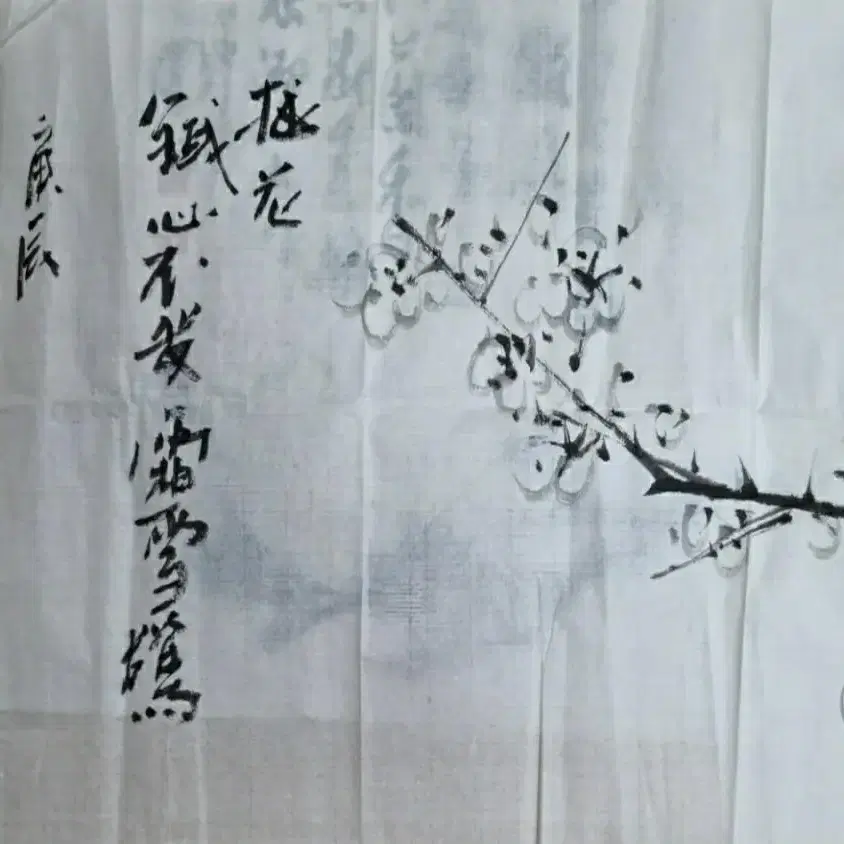 梅花
鐵心不受霜雪驚
庚辰